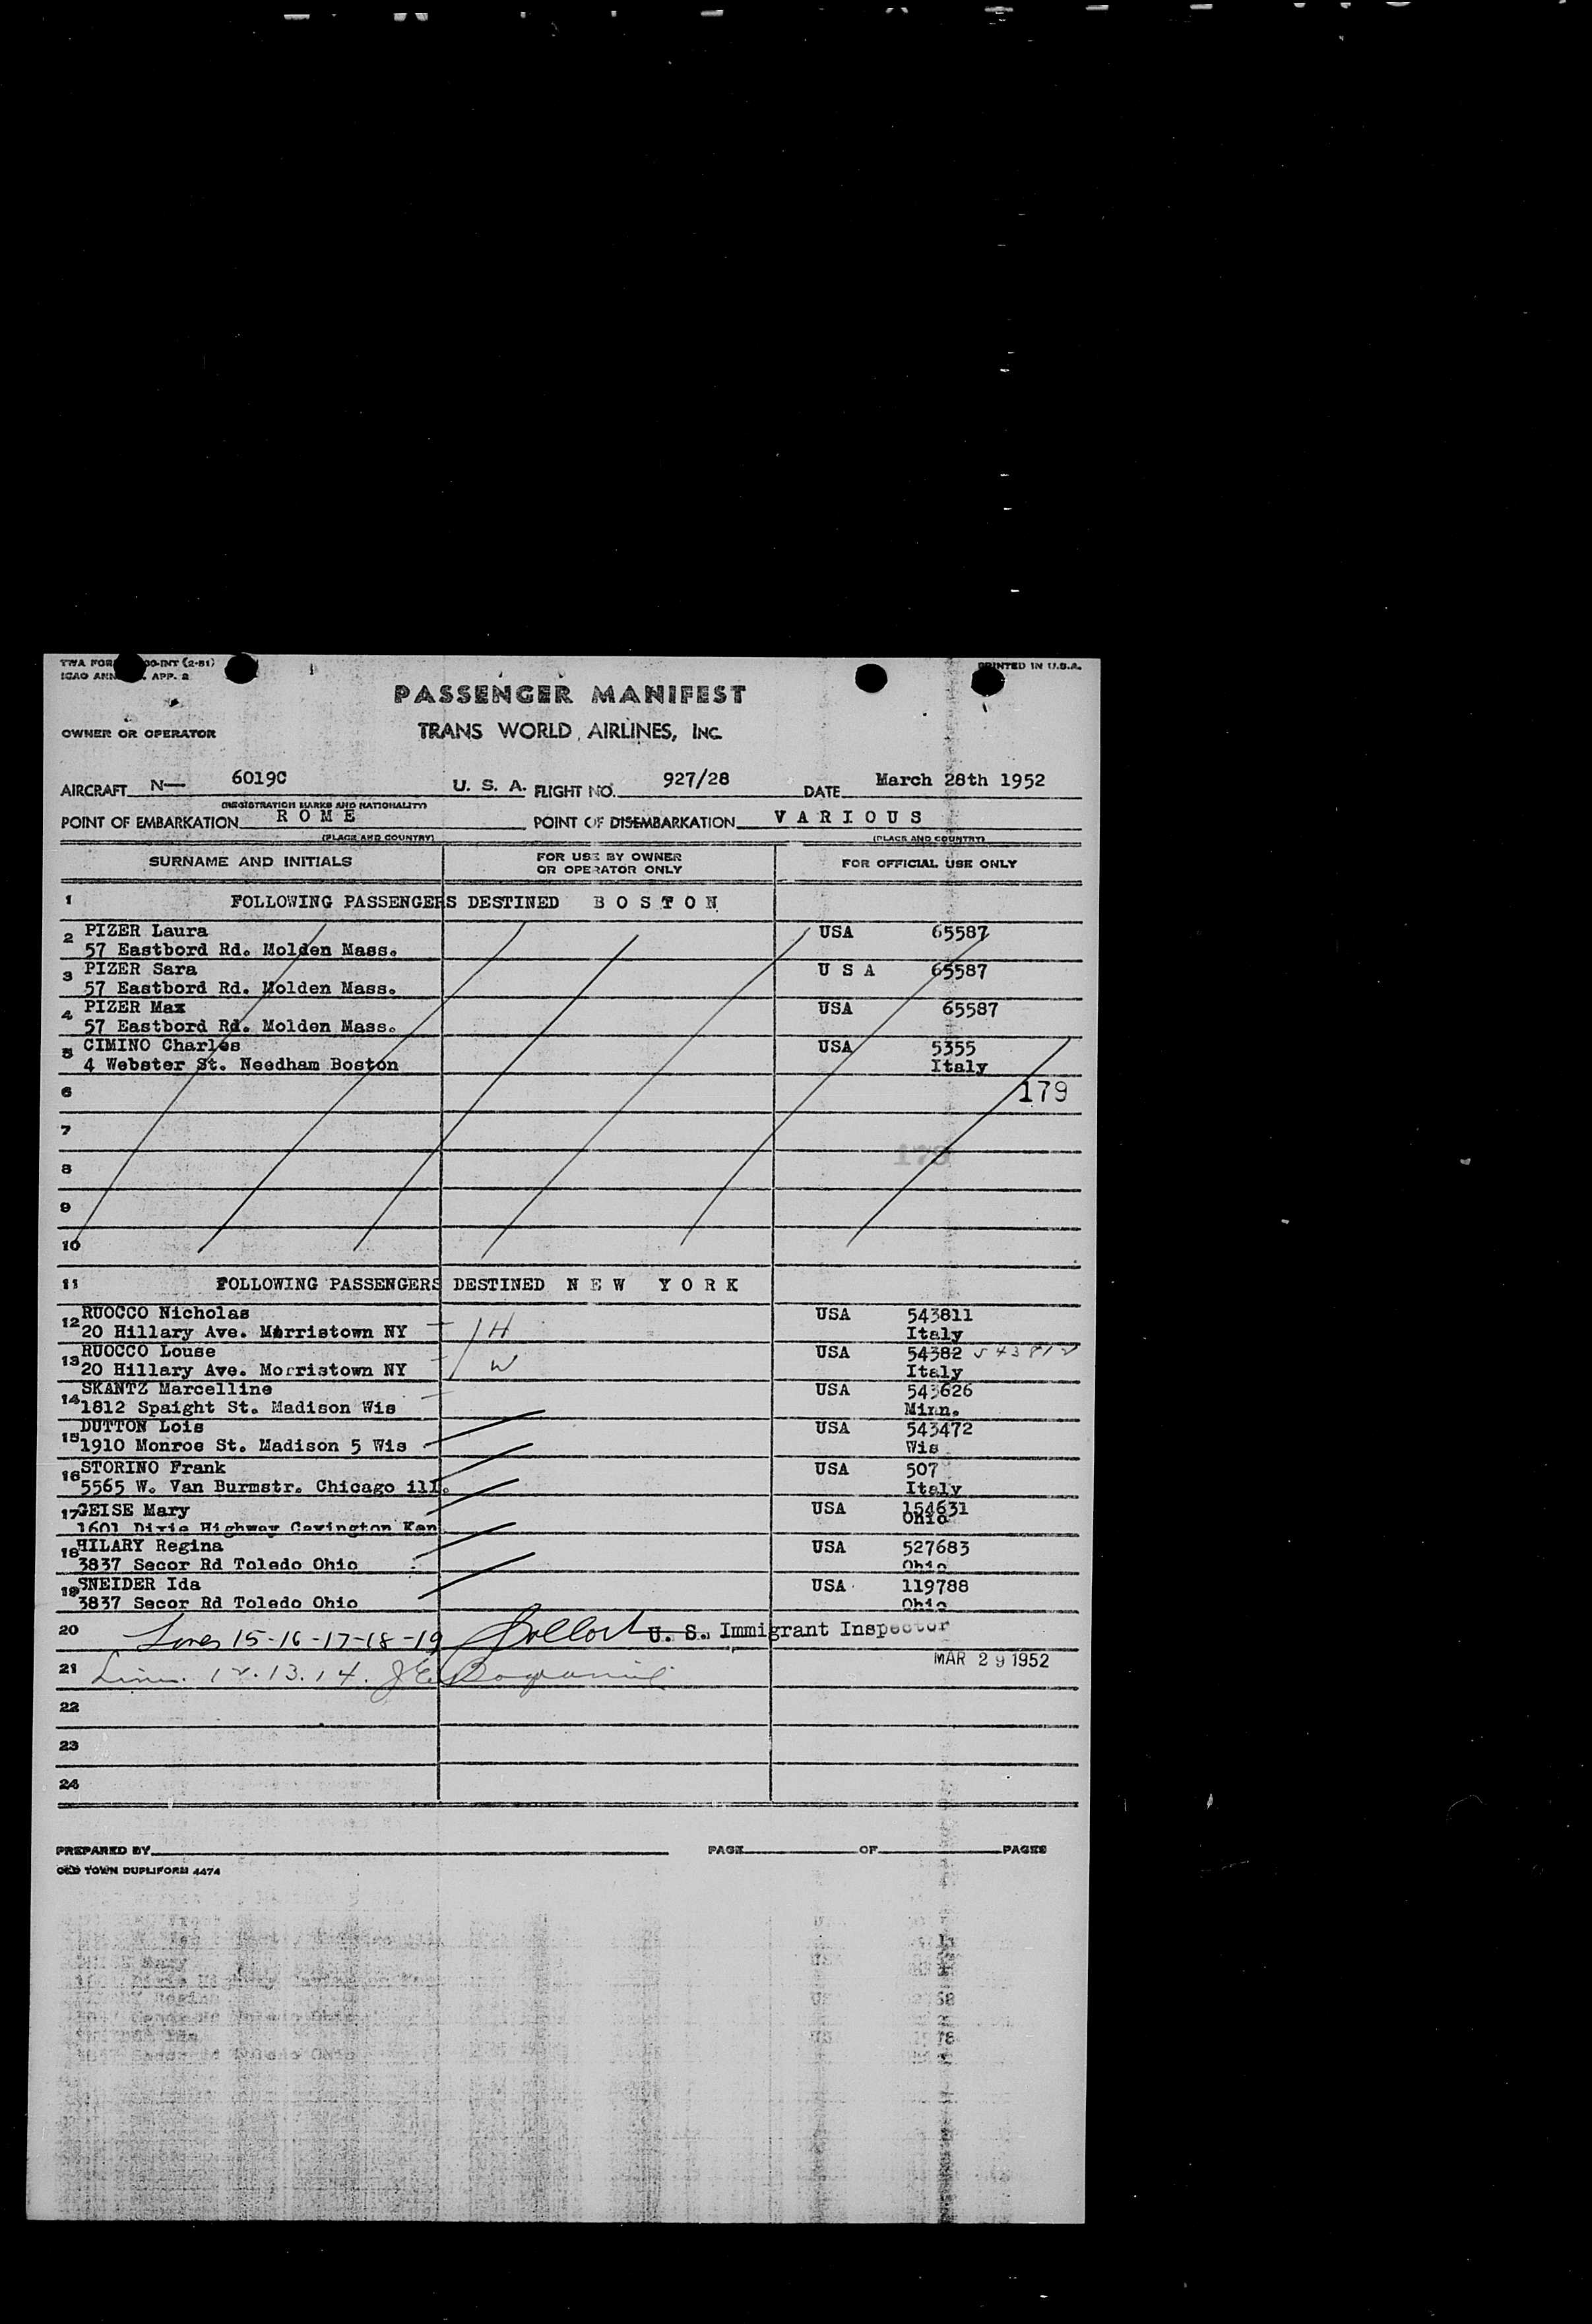 PRINTED IN U.S.A.
PASSENGER MANIFEST
OWNER OR OPERATOR TRANS WORLD AIRLINES, INC.
AIRCRAFT N— 6019C U. S. A. FLIGHT NO. 927/28 DATE March 28th 1952
(REGISTRATION MARKS AND NATIONALITY)
POINT OF EMBARKATION R O M E POINT OF DISEMBARKATION V A R I O U S
(PLACE AND COUNTRY) (PLACE AND COUNTRY)
SURNAME AND INITIALS FOR USE BY OWNER OR OPERATOR ONLY FOR OFFICIAL USE ONLY
1 FOLLOWING PASSENGERS DESTINED B O S T O N
2 PIZER Laura USA 65587
57 Eastbord Rd. Molden Mass.
3 PIZER Sara U S A 65587
57 Eastbord Rd. Molden Mass.
4 PIZER Max USA 65587
57 Eastbord Rd. Molden Mass.
5 CIMINO Charles USA 5355
4 Webster St. Needham Boston Italy
6 179
7
8 178
9
10
11 FOLLOWING PASSENGERS DESTINED N E W Y O R K
12 RUOCCO Nicholas H USA 543811
20 Hillary Ave. Morristown NY Italy
13 RUOCCO Louse W USA 54382 543812
20 Hillary Ave. Morristown NY Italy
14 SKANTZ Marcelline USA 543626
1812 Spaight St. Madison Wis Minn.
15 DUTTON Lois USA 543472
1910 Monroe St. Madison 5 Wis Wis
16 STORINO Frank USA 507
5565 W. Van Burmstr. Chicago ill. Italy
17 GEISE Mary USA 154631
1601 Dixie Highway Covington Ken Ohio
18 HILARY Regina USA 527683
3837 Secor Rd Toledo Ohio Ohio
19 SNEIDER Ida USA 119788
3837 Secor Rd Toledo Ohio Ohio
20 Lines 15-16-17-18-19 U. S. Immigrant Inspector
MAR 29 1952
21 Lines 12.13.14.
22
23
24
PREPARED BY PAGE OF PAGES
OLD TOWN DUPLIFORM 4474